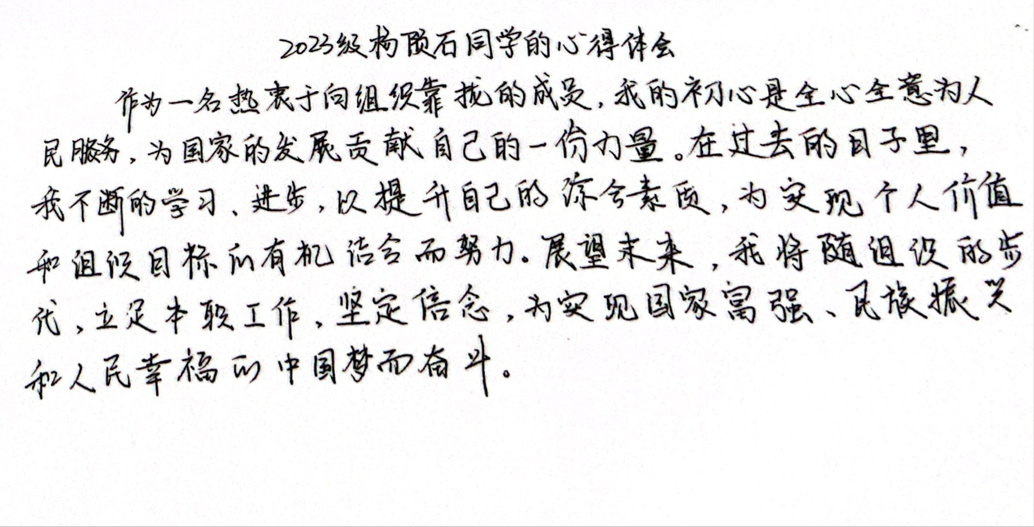 2023级杨陨石同学的心得体会
作为一名热衷于向组织靠拢的成员,我的初心是全心全意为人
民服务,为国家的发展贡献自己的一份力量。在过去的日子里,
我不断的学习、进步,以提升自己的综合素质,为实现个人价值
和组织目标的有机结合而努力。展望未来,我将随组织的步
伐,立足本职工作,坚定信念,为实现国家富强、民族振兴
和人民幸福的中国梦而奋斗。